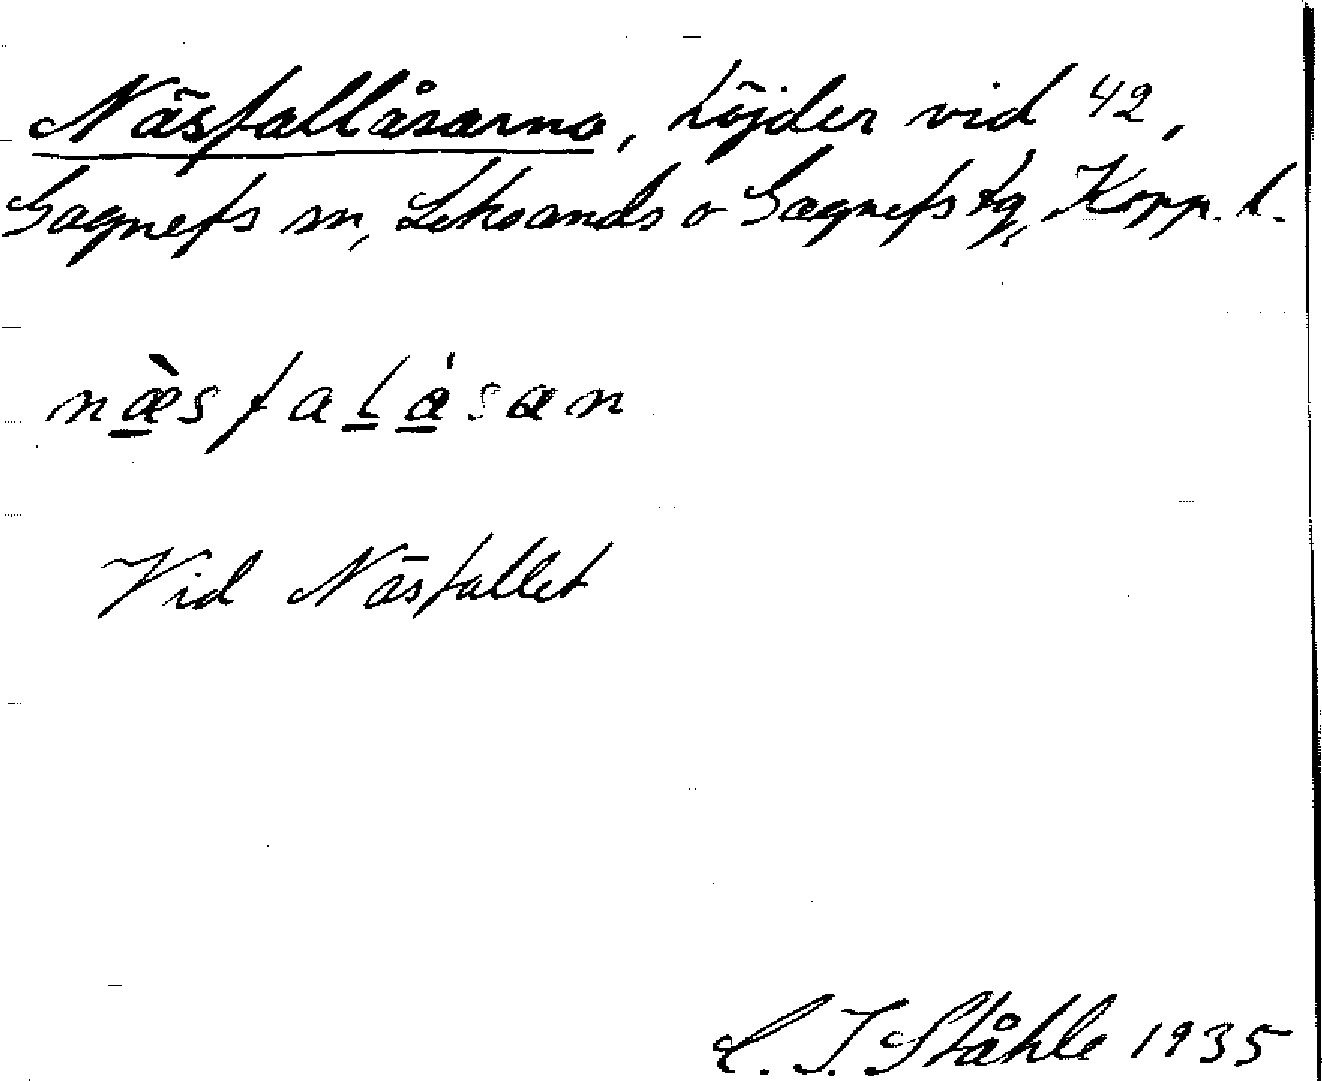 Näsfallåsarna, höjder vid 42,
Gagnefs sn, Leksands o Gagnefs tg, Kopp. l.
næ̀sfalåsan
Vid Näsfallet
C. I. Ståhle 1935